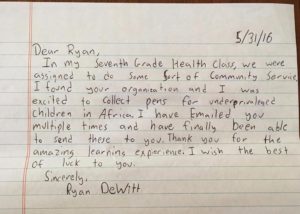 5/31/16
Dear Ryan,
In my Seventh Grade Health Class, we were
assigned to do some sort of Community Service
I found your organization and I was
excited to collect pens for underprivaleged
children in Africa. I have Emailed you
multiple times and have finally been able
to send these to you. Thank you for the
amazing learning experience. I wish the best
of luck to you.
Sincerely,
Ryan DeWitt